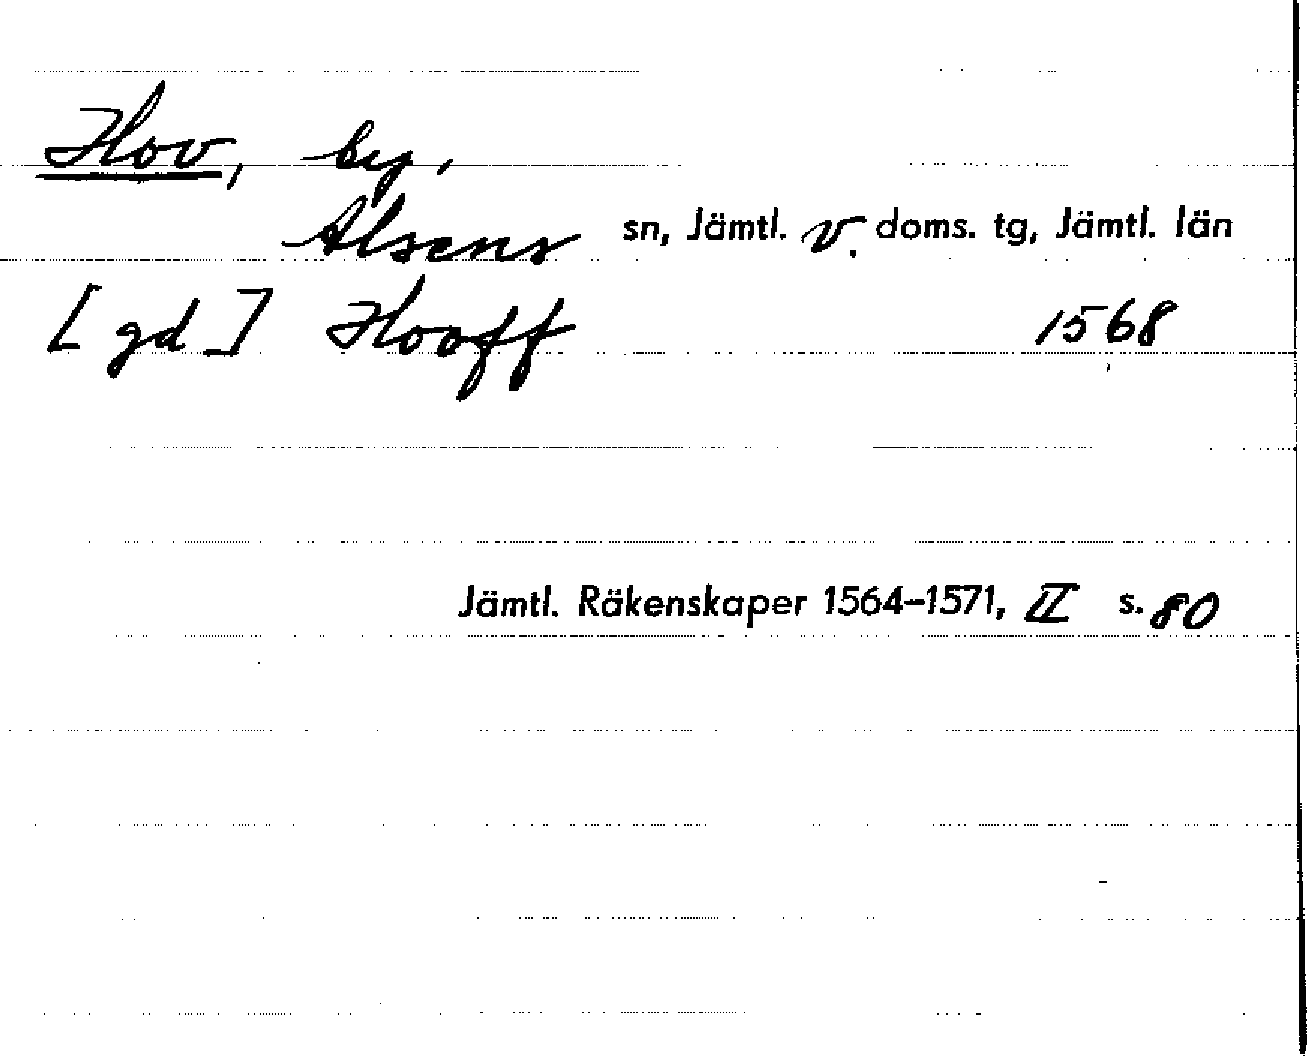 Hov, by,
Alsens sn, Jämtl. v. doms. tg, Jämtl. län
[gd] Hooff 1568
Jämtl. Räkenskaper 1564–1571, II s. 80